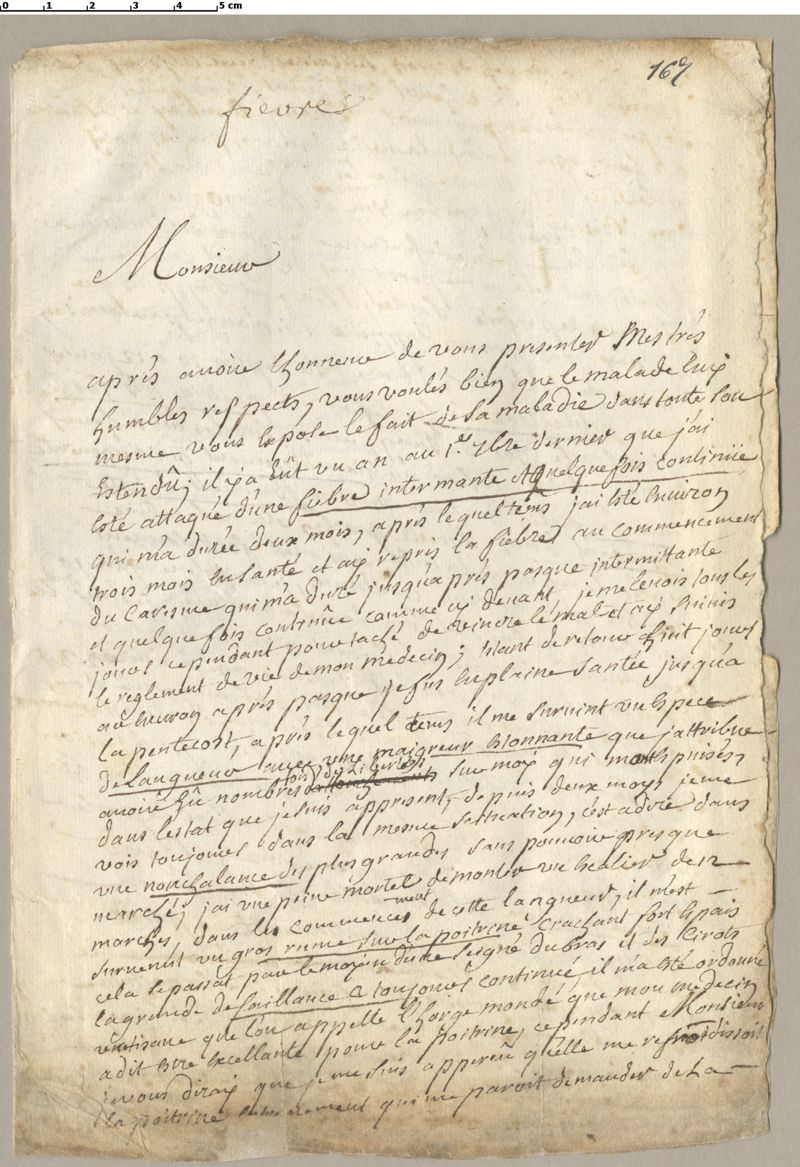 0 1 2 3 4 5 cm
167
fievres
Monsieur
aprés avoire lhonneur de vous presenter Mes trés
humbles respects, vous voulés bien que le malade luy
mesme vous Expose le fait de sa maladie dans toute son
Estendû; il y a Eût un an au 1.er 7bre dernier que j'ai
Esté attaqué d'une fiébre intermante et quelque fois continüe
qui m'a durée deux mois, aprés lequel tems j'ai Esté Environ
trois mois En santé et aÿ repris la fiébre au commencement
du Caresme qui m'a duré jusqu'a prés pasque intermittante
et quelque fois continüe comme cy devant, je me levois tous les
jours cependant pour taché de veincre le mal et aÿ suivis
le reglement de vie de mon médecin; Estant de retour huit jours
au Environ aprés pasque je fus En plaine santée jusqu'a
la pentecost, aprés lequel tems il me survint un Espece
de langueur avec une maigreur Etonnante que j'attribue
avoire Eû nombres sur moy qui m'ont Epuisés,
dans l'estat que je suis appresent, depuis deux moys je me
vois toujours dans la mesme situation, c'est a dire dans
une nonchalance des plus grandes sans pouvoire presque
marché; j'ai une peine mortel de monter un Escalier de 12
marches, dans les commencement de cette langueur, il m'est
survenut un gros rume sur la poitrine crachant fort Epais
cela se passat par le moyen d'une seigné du bras et des Sirots
la grande defaillance a toujours continué, il m'a Esté ordonné
un tisane que l'on appelle l'horge mondé que mon médecin
a dit Estre Excellante pour la poitrine, cependant Monsieur
je vous diraÿ que je me suis apperçû qu'elle me refroidissoit
la poitrine qui me paroit demander de La